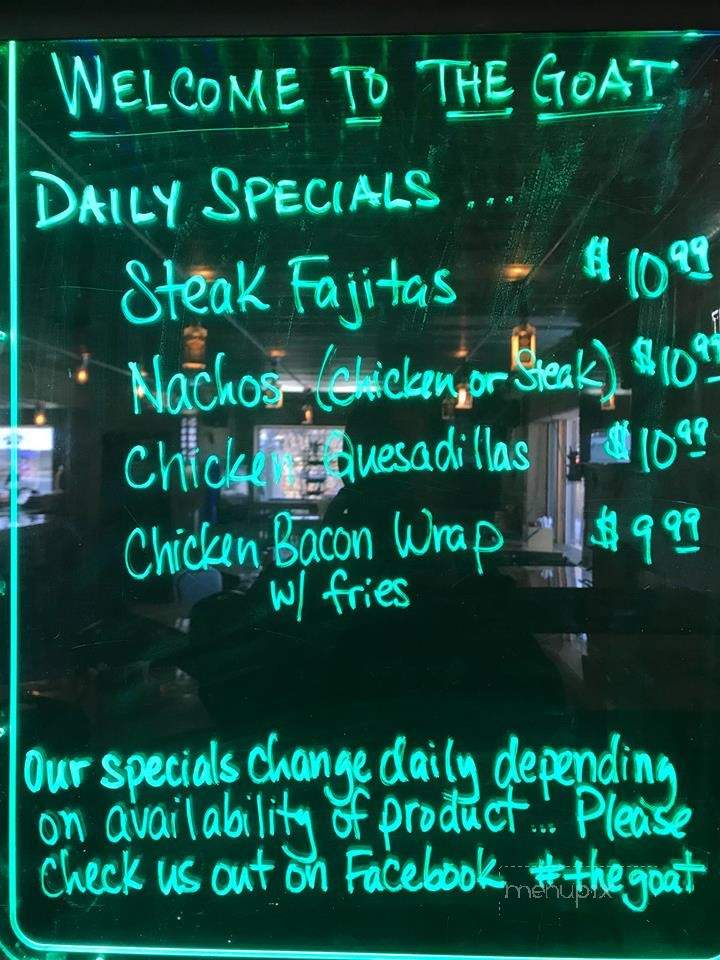 WELCOME TO THE GOAT
DAILY SPECIALS ...
Steak Fajitas $10 99
Nachos (Chicken or Steak) $10 99
Chicken Quesadillas $10 99
Chicken Bacon Wrap $9 99
w/ fries
Our specials change daily depending
on availability of product... Please
check us out on Facebook #thegoat
menupix